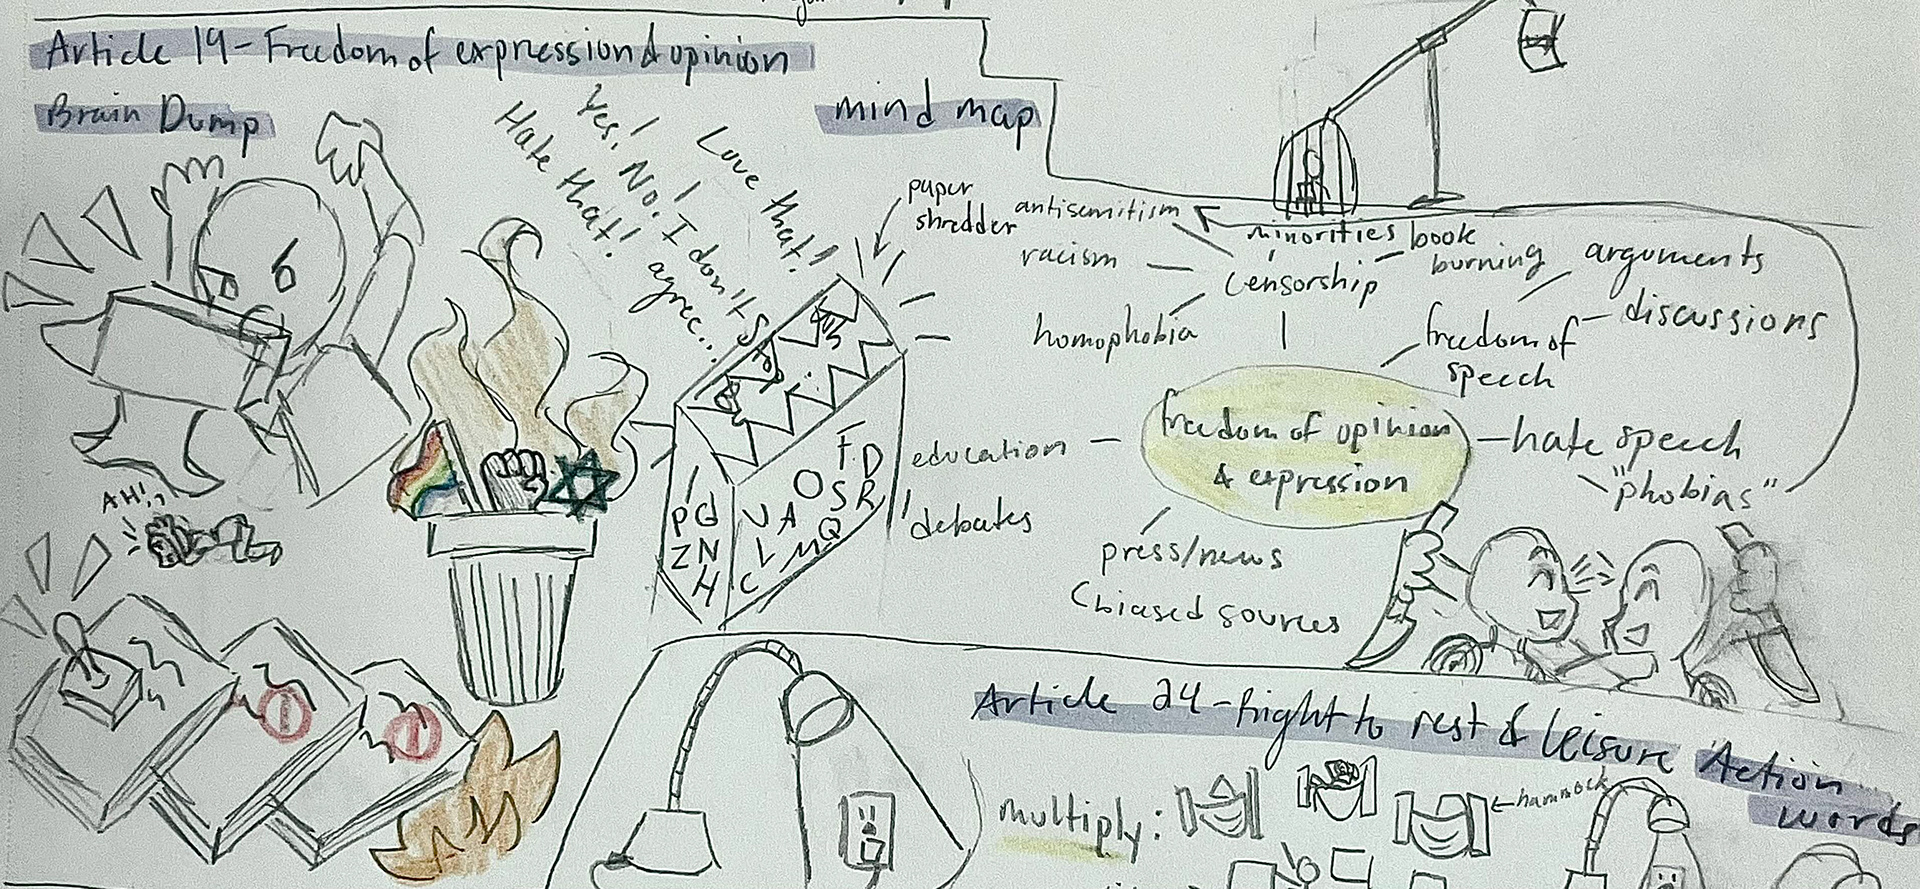 Article 19 - Freedom of expression & opinion
Brain Dump
mind map
Yes!
No!
Love that!
Hate that!
I don't
agree...
paper
shredder
antisemitism
racism
homophobia
minorities
censorship
book
burning
arguments
discussions
freedom of
speech
freedom of opinion
& expression
education
debates
hate speech
"phobias"
press/news
biased sources
AH!
F D
O S R
U A Q
L M
C
P G
Z N
H
Article 24 - Right to rest & leisure
Action
words
multiply:
hammock